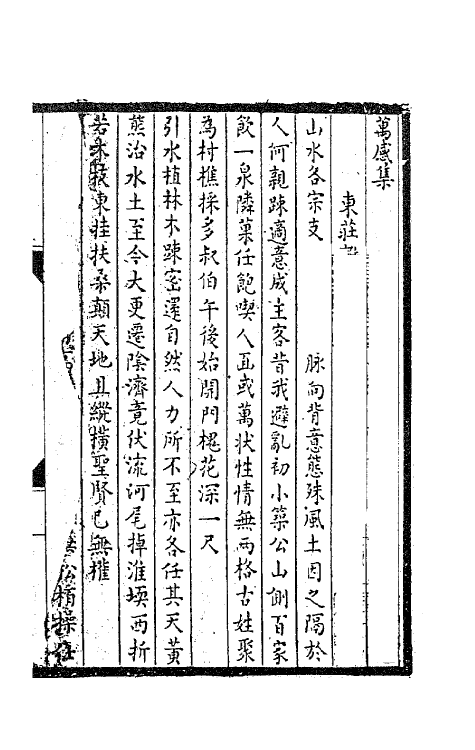 萬感集
東莊
山水各宗支　脉向背意態殊風土因之隔於
人何親踈適意成主客昔我避亂初小築公山側百家
飲一泉隣菓任飽喫人面或萬状性情無兩格古姓聚
為村樵採多叔伯午後始開門槐花深一尺
引水植林木踈密還自然人力所不至亦各任其天黄
熊治水土至今大更遷陰濟竟伏流河尾掉淮堧西折
若木枝東挂扶桑顛天地且縱横聖賢已無權